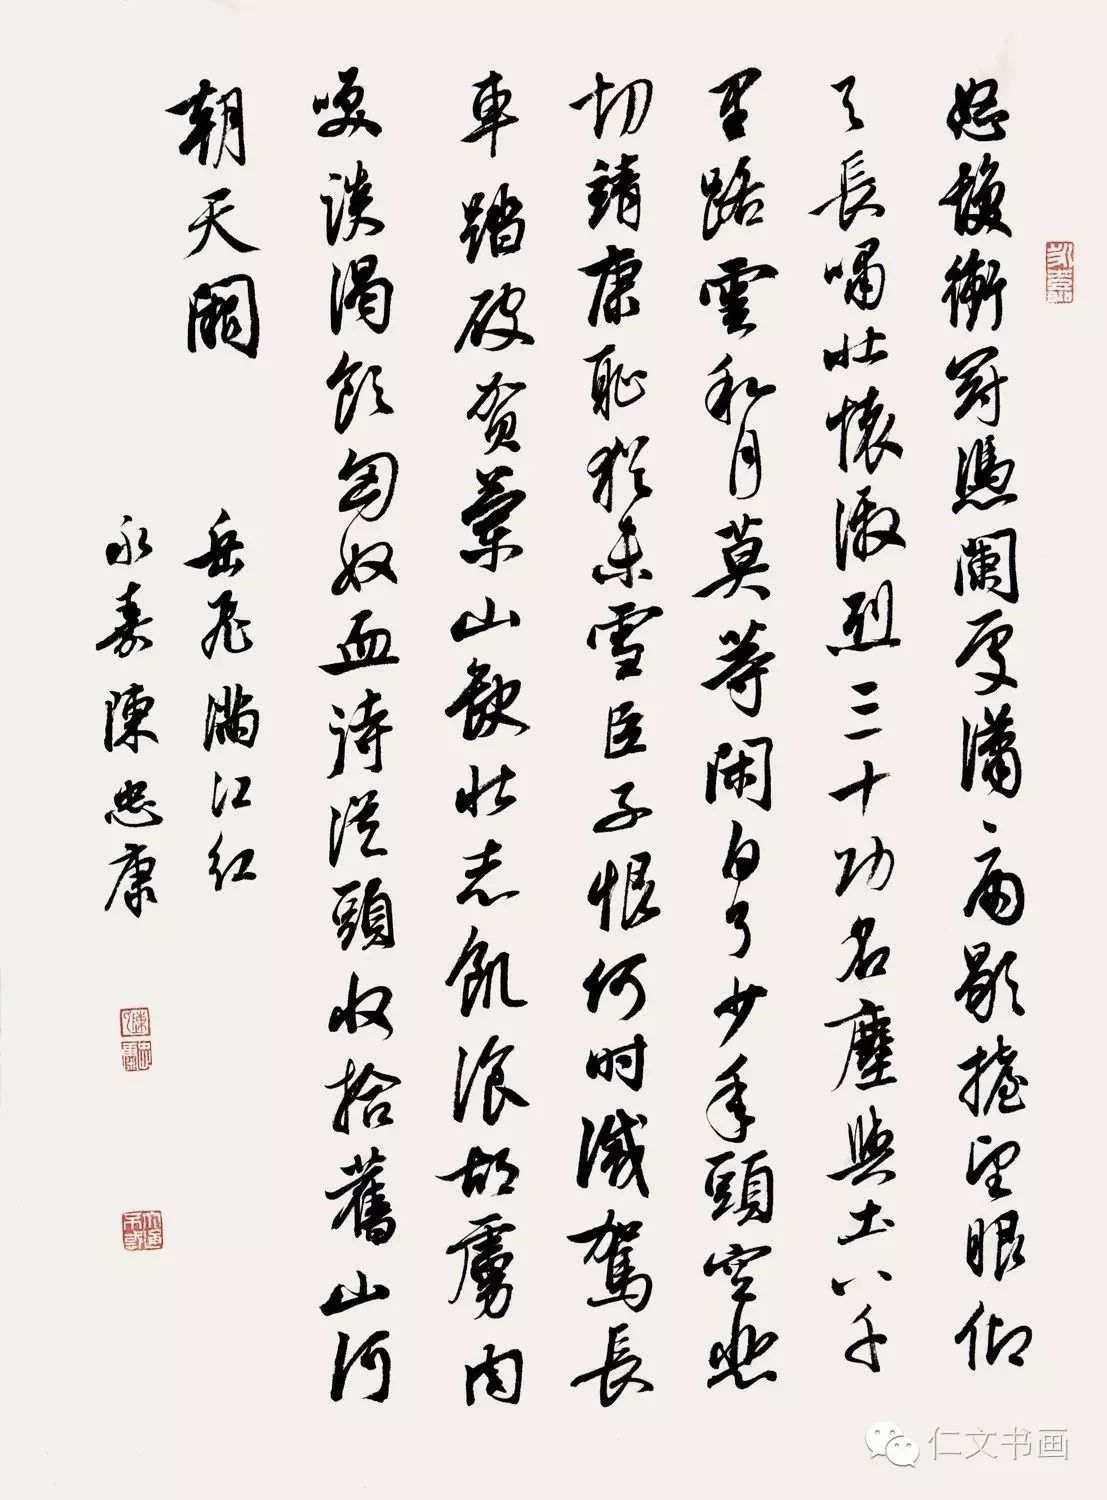 怒髮衝冠憑闌處瀟〻雨歇擡望眼仰
天長嘯壯懷激烈三十功名塵與土八千
里路雲和月莫等閑白了少年頭空悲
切靖康恥猶未雪臣子恨何时滅駕長
車踏破贺蘭山缺壯志飢湌胡虜肉
咲談渴飲匈奴血待從頭收拾舊山河
朝天闕
岳飛滿江紅
永嘉陳忠康
仁文书画